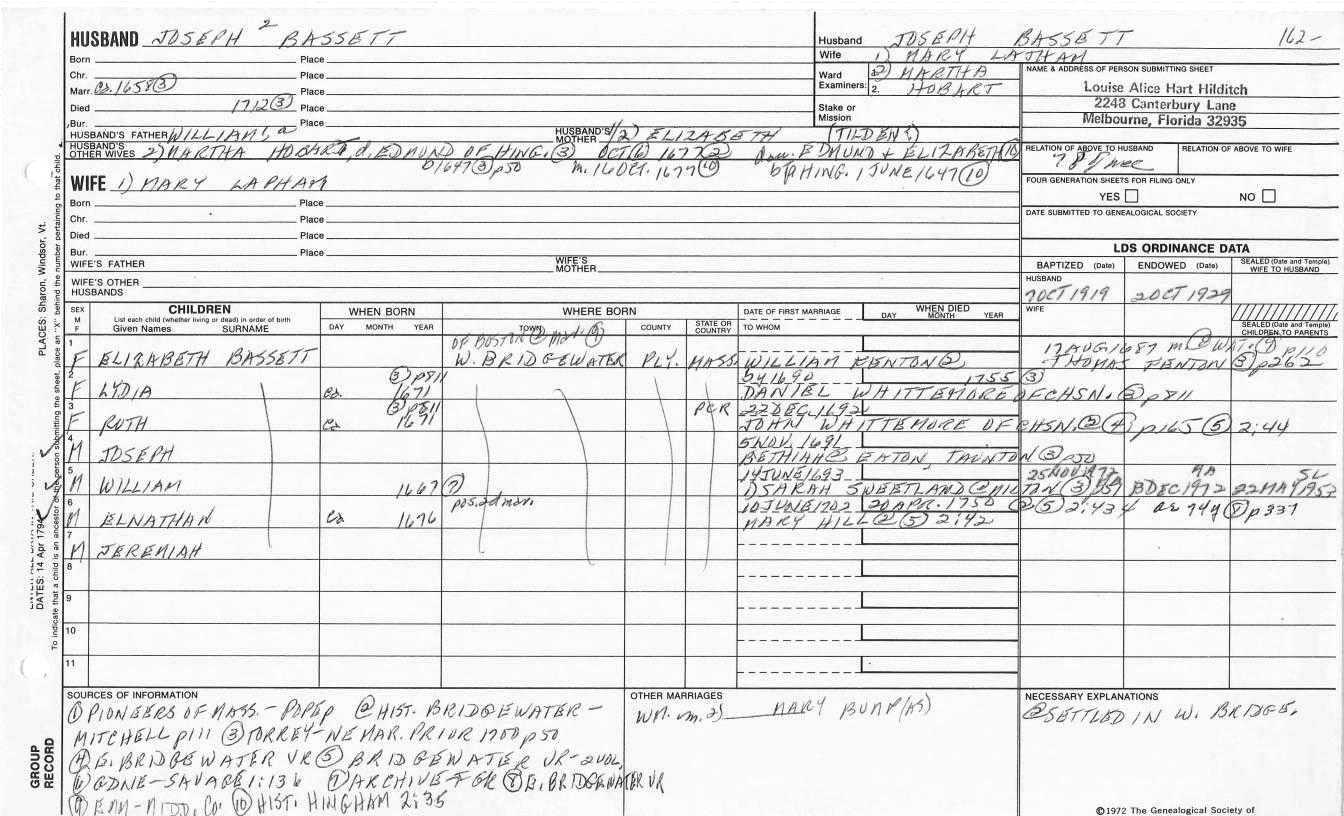 HUSBAND JOSEPH 2 BASSETT
Born Place
Chr. Place
Marr. Ca. 1658 ③ Place
Died 1712 ③ Place
Bur. Place
HUSBAND'S FATHER WILLIAM 1, a HUSBAND'S MOTHER 1/2) ELIZABETH (TILDEN?)
HUSBAND'S OTHER WIVES 2) MARTHA HOBART, d. EDMUND OF HING. ③ OCT ⑥ 1677 ② dau. EDMUND + ELIZABETH ⑩
b 1647 ③ p50 m. 16 OCT. 1677 ⑩ b HING. 1 JUNE 1647 ⑩
WIFE 1) MARY LAPHAM
Born Place
Chr. Place
Died Place
Bur. Place
WIFE'S FATHER WIFE'S MOTHER
WIFE'S OTHER HUSBANDS
Husband JOSEPH BASSETT 162-
Wife 1) MARY LAPHAM
Ward Examiners: 2) MARTHA
2. HOBART
Stake or Mission
NAME & ADDRESS OF PERSON SUBMITTING SHEET
Louise Alice Hart Hilditch
2248 Canterbury Lane
Melbourne, Florida 32935
RELATION OF ABOVE TO HUSBAND RELATION OF ABOVE TO WIFE
FOUR GENERATION SHEETS FOR FILING ONLY
YES NO
DATE SUBMITTED TO GENEALOGICAL SOCIETY
LDS ORDINANCE DATA
BAPTIZED (Date) ENDOWED (Date) SEALED (Date and Temple) WIFE TO HUSBAND
HUSBAND
7 OCT 1919 2 OCT 1929
WIFE
SEALED (Date and Temple) CHILDREN TO PARENTS
SEX M F CHILDREN WHEN BORN WHERE BORN DATE OF FIRST MARRIAGE WHEN DIED
List each child (whether living or dead) in order of birth
Given Names SURNAME DAY MONTH YEAR TOWN COUNTY STATE OR COUNTRY TO WHOM DAY MONTH YEAR
OF BOSTON
1 F ELIZABETH BASSETT W. BRIDGEWATER PLY. MASS. WILLIAM FENTON ② 17 AUG 1687 p110
THOMAS FENTON ③ p262
2 F LYDIA ③ p811 ca. 1671 1690 1755 ③
DANIEL WHITTEMORE OF CHSN. ③ p811
3 F RUTH ③ p811 ca 1671 22 DEC. 1692
JOHN WHITTEMORE OF CHSN. ② ④ p165 ⑤ 2:44
4 M JOSEPH 5 NOV. 1691
BETHIAH @ EATON, TAUNTON ③ p50
5 M WILLIAM 1667 ⑦ 14 JUNE 1693 25 NOV 1972
SARAH SWEETLAND @ MILTON ③ 8 DEC 1972 22 MAY 1957 SL
6 M ELNATHAN ca 1676 10 JUNE 1702 20 APR. 1750 ② ⑤ 2:43 ae 74y ⑧ p337
MARY HILL ② ⑤ 2:42
7 M JEREMIAH
8
9
10
11
SOURCES OF INFORMATION
① PIONEERS OF MASS. - POPE ② HIST. BRIDGEWATER -
MITCHELL p111 ③ TORREY - NE MAR. PRIOR 1700 p50
④ E. BRIDGEWATER VR ⑤ BRIDGEWATER VR - 2 VOL,
⑥ GDNE - SAVAGE 1:136 ⑦ ARCHIVE FGR ⑧ E. BRIDGEWATER VR
⑨ MIDD. Co. ⑩ HIST. HINGHAM 2:35
OTHER MARRIAGES
WM. m. 2) MARY BUMP(AS)
NECESSARY EXPLANATIONS
@ SETTLED IN W. BRIDGE.
©1972 The Genealogical Society of
GROUP RECORD
To indicate that a child is an ancestor of the person submitting the sheet, place an "X" behind the number pertaining to that child.
DATES: 14 Apr 1794
PLACES: Sharon, Windsor, Vt.